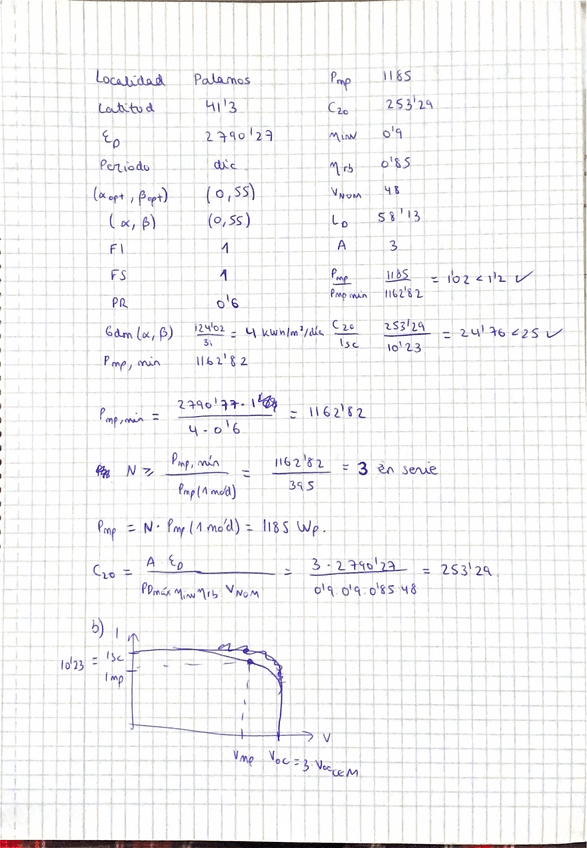 Localidad Palamos Pmp 1185
Latitud 41'3 C20 253'29
ED 2790'27 ηinv 0'9
Periodo dic. ηrb 0'85
(αopt, βopt) (0,55) VNOM 48
(α, β) (0,55) LD 58'13
FI 1 A 3
FS 1 Pmp/Pmp min 1185/1162'82 = 1'02 < 1'2 ✓
PR 0'6
Gdm (α, β) 124'02/31 = 4 kWh/m²/día C20/Isc 253'29/10'23 = 24'76 < 25 ✓
Pmp, min 1162'82
Pmp,min = 2790'77 · 1 / 4 · 0'6 = 1162'82
N ≥ Pmp, mín / Pmp (1 mód) = 1162'82 / 395 = 3 en serie
Pmp = N · Pmp (1 mód) = 1185 Wp.
C20 = A ED / PDmáx ηinv ηrb VNOM = 3 · 2790'27 / 0'9 · 0'9 · 0'85 48 = 253'29
b) I
10'23 = Isc
Imp
V
Vmp Voc = 3 · Voc CEM